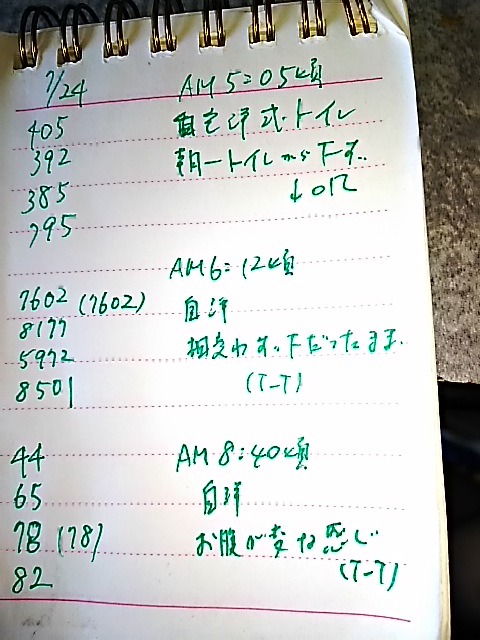 7/24 AM 5:05頃
405 自宅洋式トイレ
392 朝一トイレから下す。
385 ↓OR
795
AM6:12頃
7602 (7602) 自洋
8177 相変わらず下だったまま。
5972 (T-T)
8501
44 AM 8:40頃
65 自洋
78 (78) お腹が変な感じ
82 (T-T)